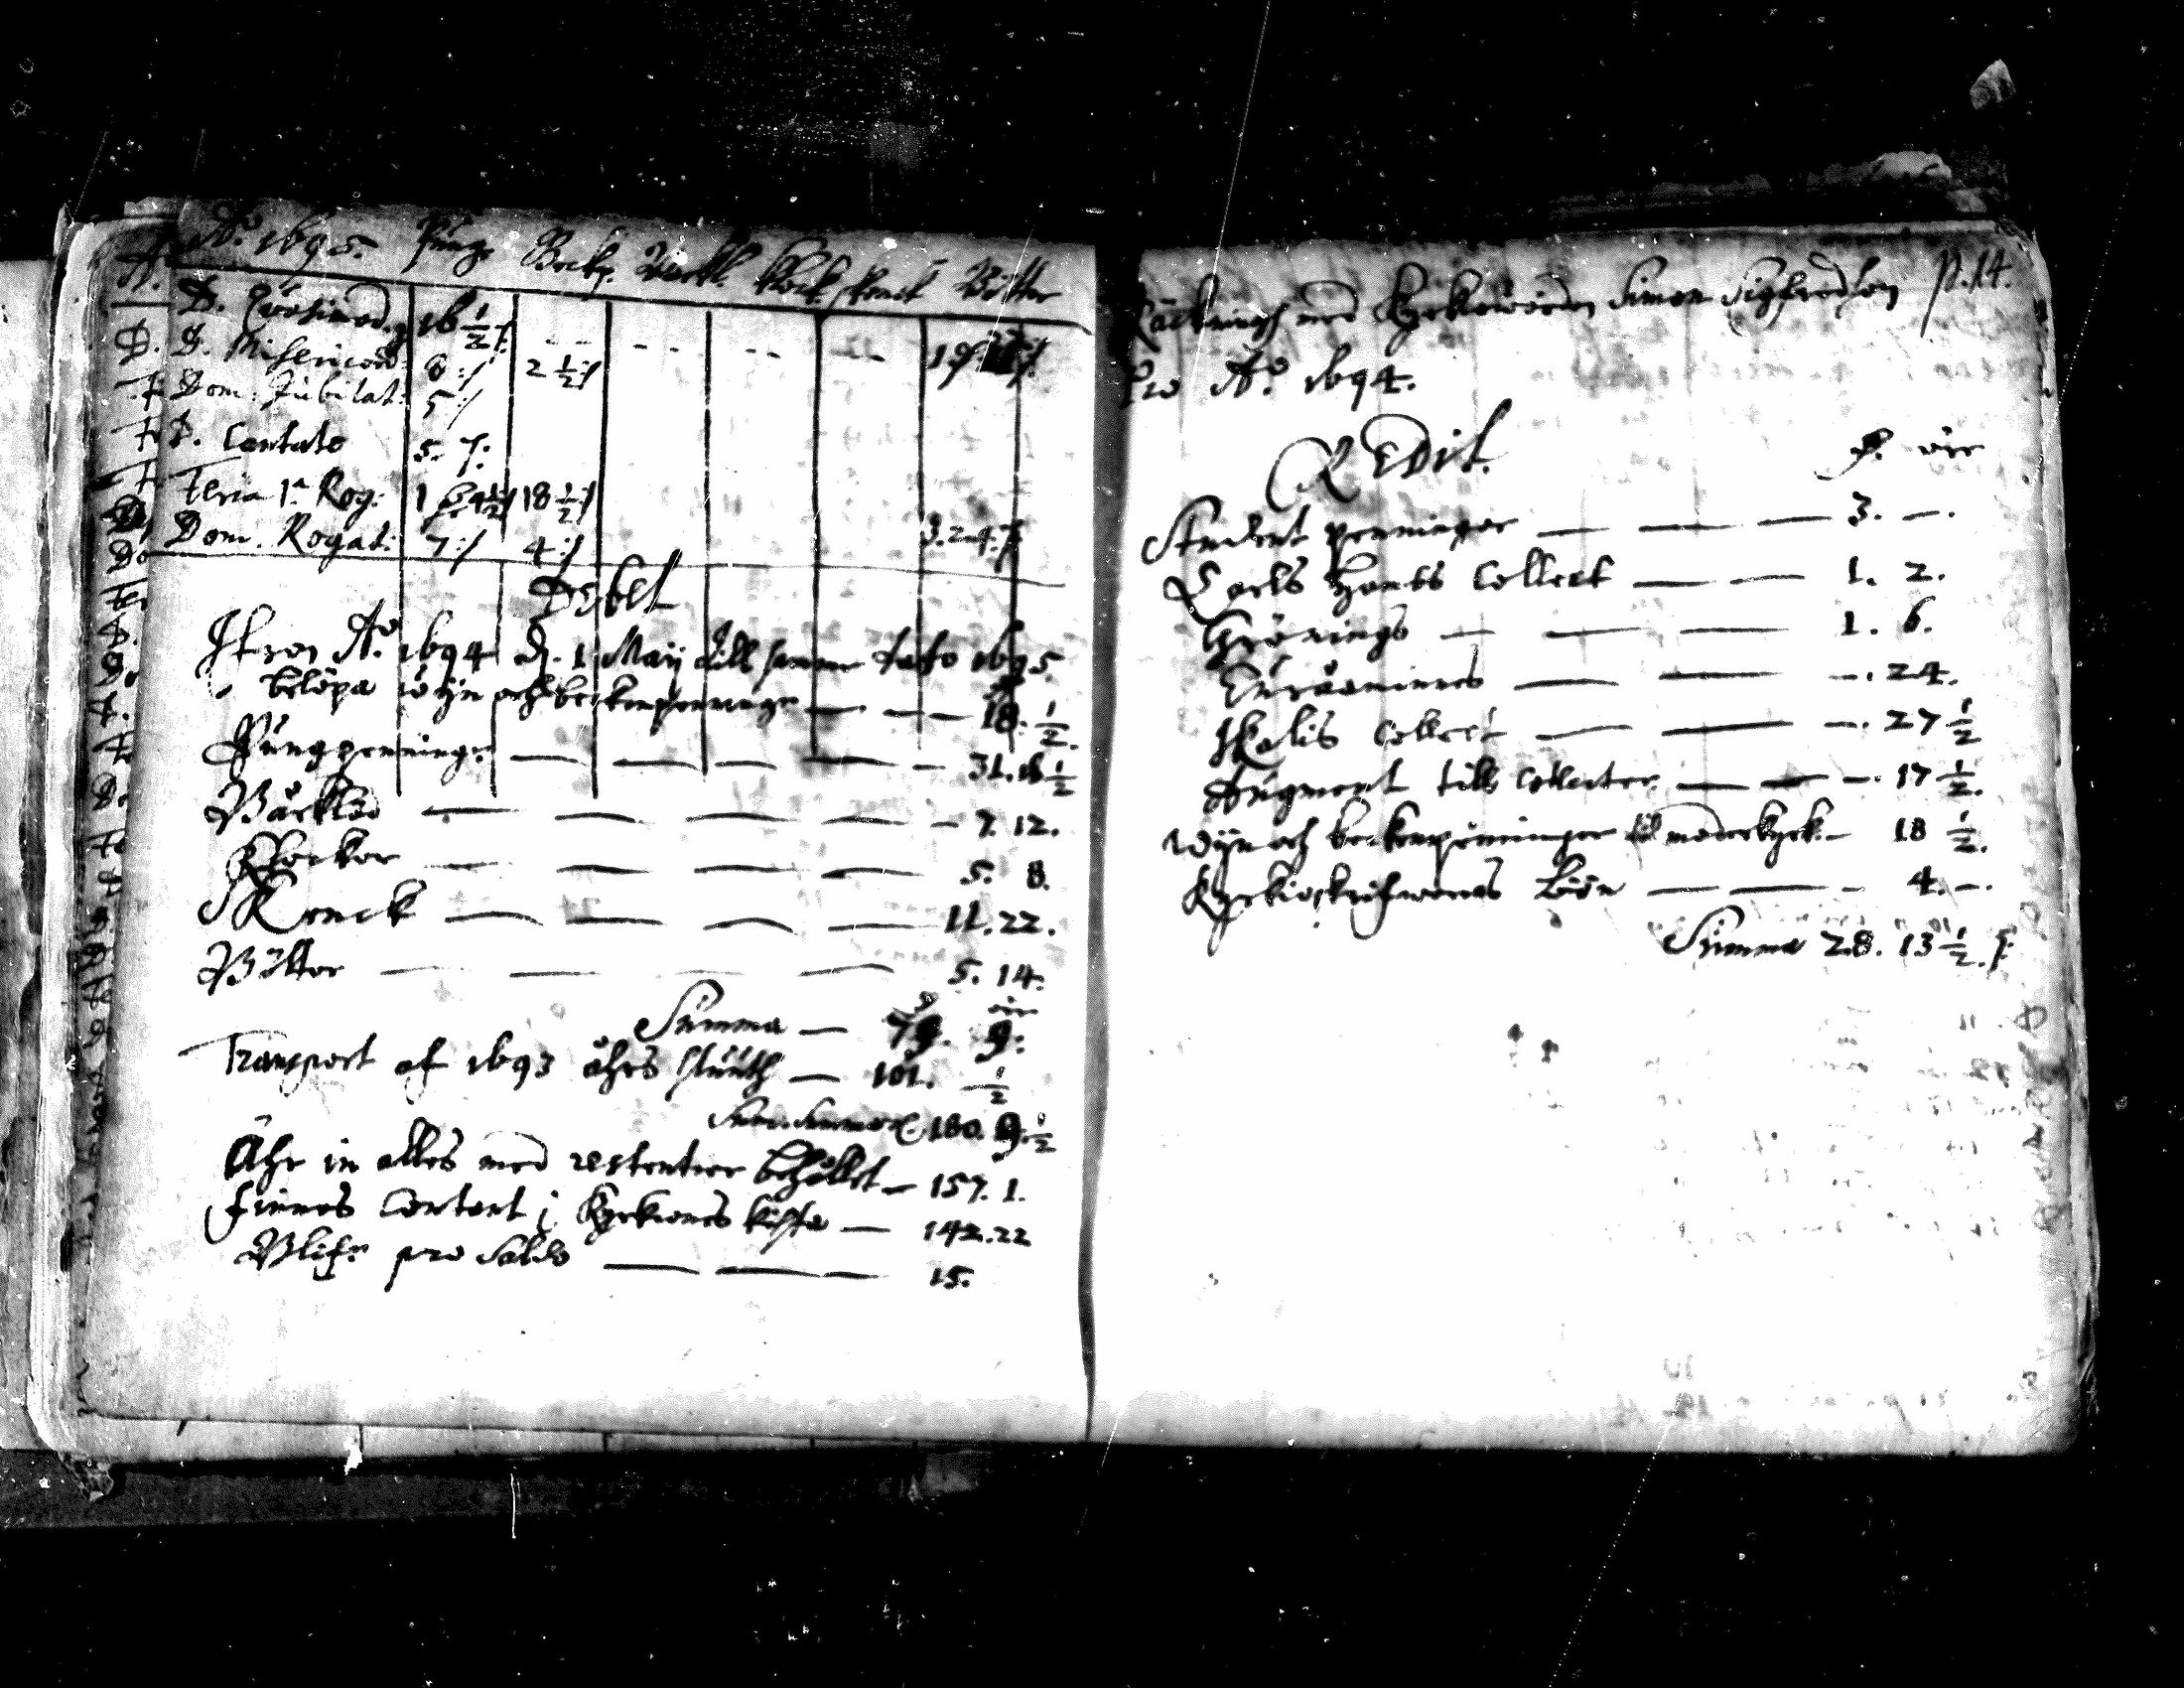 Aº 1695. Pung. Beck. Wärkl. Klock. skänck Bötter
D. Qvasimod. 16 1/2 :/
D. Misericord. 8 :/ 2 1/2 :/
Dom. Jubilat: 5 :/
D. Cantate 5. :/:
Feria 1ª Rog: 1 9 1/2 :/ 18 1/2 :/
Dom. Rogat: 7 :/ 4 :/ 3. 24. :/
Debet
Ifron Aº 1694 d. 1 Maij till samma dato 1695.
belöpa wijn och beckenpenningr — — — 18. 1/2.
Pungpenningr — — — — — 31. 16 1/2
Wärklod — — — — — 7. 12.
Klockor — — — — 5. 8.
Skenck — — — — 11. 22.
Bötter — — — — 5. 14.
Summa — 79. 9:
Transport af 1693 åhrs sluuth — 101. 1/2
Sum. Summar. 180. 9. 1/2
Ähr in alles med restentier behållet — 157. 1.
finnes Contant i Kyrkiones kista — 142. 22
Blifr pro Saldo — — — 15.
Räkningh med Kyrkiowärden Simon Sigfredson p. 14.
Pro Aº 1694.
CREDIT. öre
Student penningar — — — 3. —.
Carls Hambs Collect — — 1. 2.
— — — 1. 6.
— — —. 24.
Collect — — —. 27 1/2
Augment till Collecter — — —. 17 1/2.
Wijn och beckenpenningar till moderkyrk. — 18 1/2.
Kyrkioskrifwarens Löön — — — 4. —.
Summa 28. 13 1/2. :/: